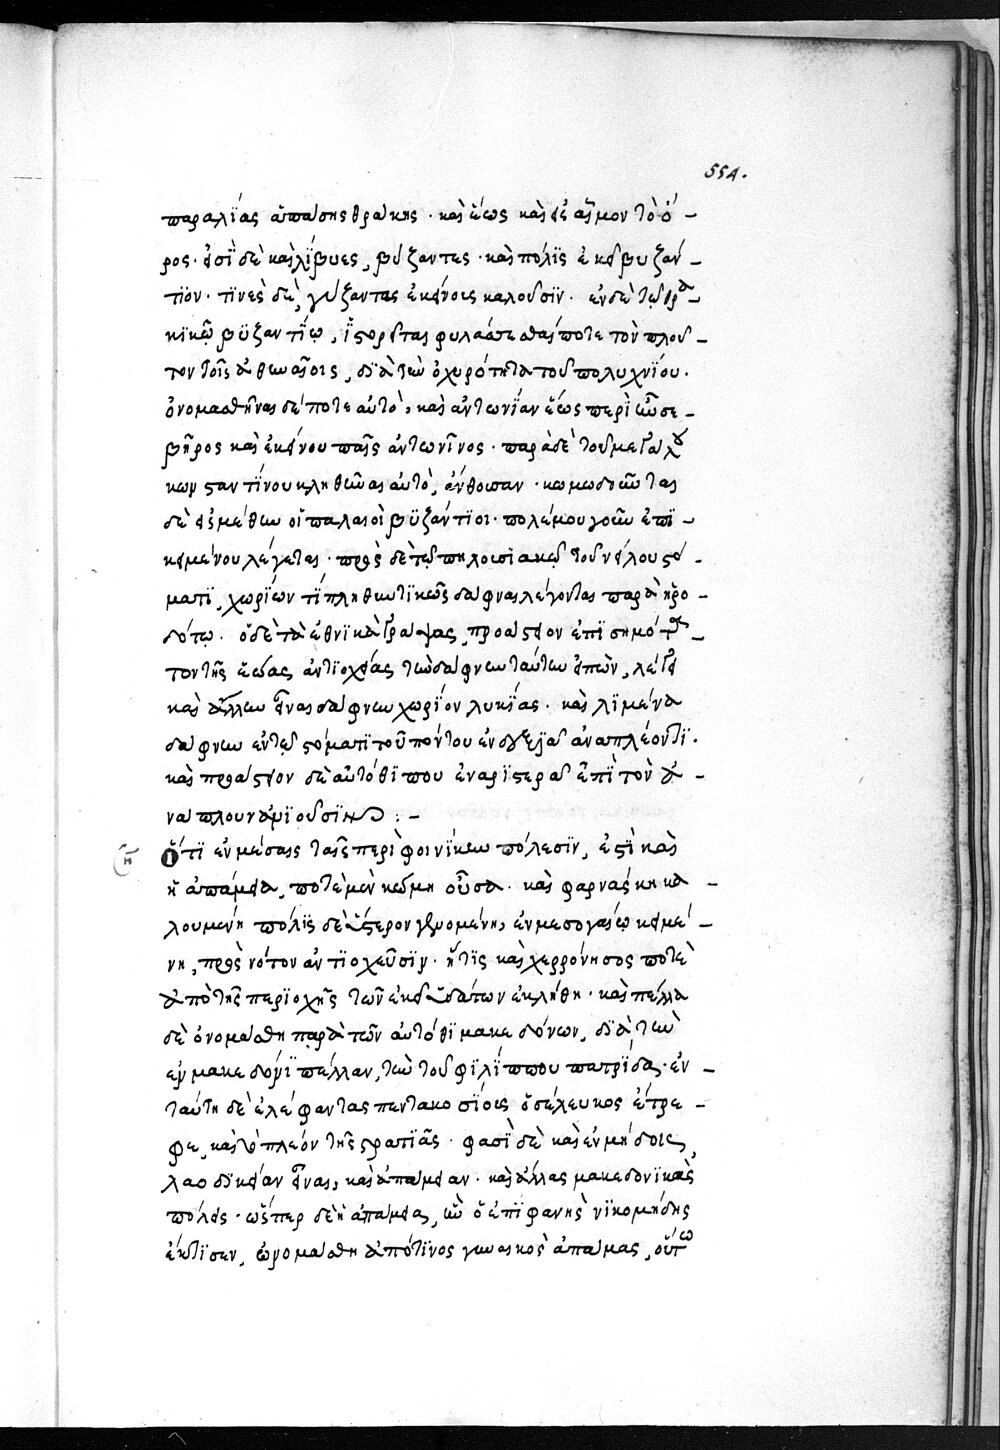 554.
παραλίας ἁπάσης θράκης · καὶ ἕως καὶ εἰς αἷμον τὸ ὄ -
ρος · εἰσὶ δὲ καὶ λίβυες, βύζαντες · καὶ πόλις ἐκεῖ βυζάν -
τιον · τινὲς δὲ, γύζαντας ἐκείνους καλοῦσιν · ἐν δὲ τῷ θρα -
κικῷ βυζαντίῳ, ἱστοροῦνται φυλάσσεσθαί ποτε τὸν πλοῦ -
τον τοῖς ἀθηναίοις, διὰ τὴν ὀχυρότητα τοῦ πολυχνίου ·
ὀνομασθῆναι δέ ποτε αὐτὸ, καὶ ἀντωνίαν ἕως περιῆν σε -
βῆρος καὶ ἐκείνου παῖς ἀντωνῖνος · παρὰ δὲ τοῦ μεγάλου
κωνσταντίνου κληθῆναι αὐτὸ, ἄνθουσαν · κωμωδοῦνται
δὲ εἰς μέθην οἱ παλαιοὶ βυζάντιοι · πολέμου γοῦν ἐπι -
κειμένου λέγεται · πρὸς δὲ τῷ πηλουσιακῷ τοῦ νείλου στό -
ματι, χωρίων τι πληθυντικῶς δάφναι λέγονται παρὰ ἡρο -
δότῳ · ὁ δὲ τὰ ἐθνικὰ γράψας, προάστειον ἐπισημότα -
τον τῆς ἑῴας ἀντιοχείας τὴν δάφνην ταύτην εἰπὼν, λέγει
καὶ ἄλλην εἶναι δάφνην χωρίον λυκίας · καὶ λιμένα
δάφνην ἐν τῷ στόματι τοῦ πόντου ἐν δεξιᾷ ἀναπλέοντι ·
καὶ προάστειον δὲ αὐτόθι που ἐν ἀριστερᾷ ἐπὶ τὸν ἀ -
νάπλουν : -
η Ὅτι ἐν μέσαις ταῖς περὶ φοινίκην πόλεσιν, ἐστὶ καὶ
ἡ ἀπάμεια, ποτὲ μὲν κώμη οὖσα · καὶ φαρνάκη κα -
λουμένη πόλις δὲ ὕστερον γενομένη, ἐν μεσογαίῳ κειμέ -
νη, πρὸς νότον ἀντιοχεῦσιν · ἥτις καὶ χερρόνησος ποτὲ
ἀπὸ τῆς περιοχῆς τῶν ἐκεῖ ὑδάτων ἐκλήθη · καὶ πέλλα
δὲ ὀνομάσθη παρὰ τῶν αὐτόθι μακεδόνων, διὰ τὴν
ἐν μακεδονίᾳ πέλλαν, τὴν τοῦ φιλίππου πατρίδα · ἐν -
ταύτῃ δὲ ἐλέφαντας πεντακοσίους ὁ σέλευκος ἔτρε -
φε, καὶ τὸ πλέον τῆς στρατιᾶς · φασὶ δὲ καὶ ἐν μήδοις,
λαοδίκειαν εἶναι, καὶ ἀπάμειαν · καὶ ἄλλας μακεδονικὰς
πόλεις · ὥσπερ δὲ ἡ ἀπάμεια, ἣν ὁ ἐπιφανὴς νικομήδης
ἔκτισεν, ὠνομάσθη ἀπό τινος γυναικὸς ἀπάμας, οὕτω